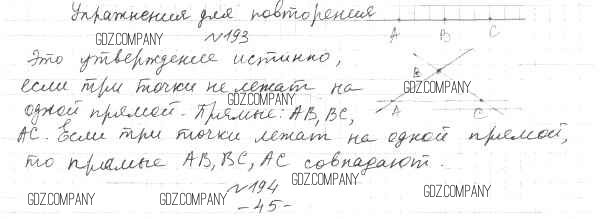 Упражнения для повторения
A B C
GDZ.COMPANY №193
Это утверждение истинно,
B
если три точки не лежат на
GDZ.COMPANY
GDZ.COMPANY
одной прямой. Прямые: AB, BC,
A C
AC. Если три точки лежат на одной прямой,
то прямые AB, BC, AC совпадают.
GDZ.COMPANY
№194
GDZ.COMPANY GDZ.COMPANY GDZ.COMPANY
-45-